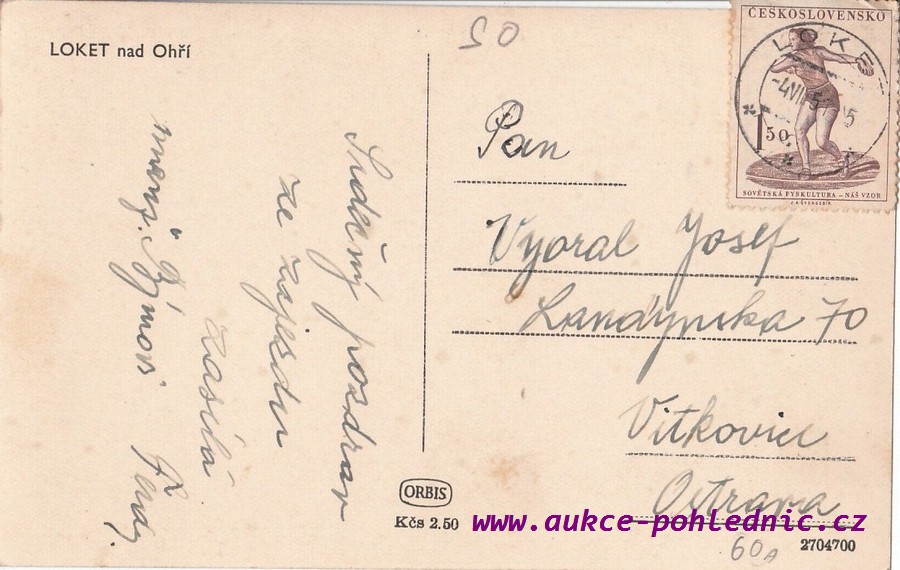 LOKET nad Ohří
50
ČESKOSLOVENSKO
LOKET
1 50
SOVĚTSKÁ FYSKULTURA – NÁŠ VZOR
Srdečný pozdrav
ze zajezdu
zasílá
Pan
Vyoral Josef
70
Vitkovice
Ostrava
ORBIS
Kčs 2.50
www.aukce-pohlednic.cz
60A
2704700